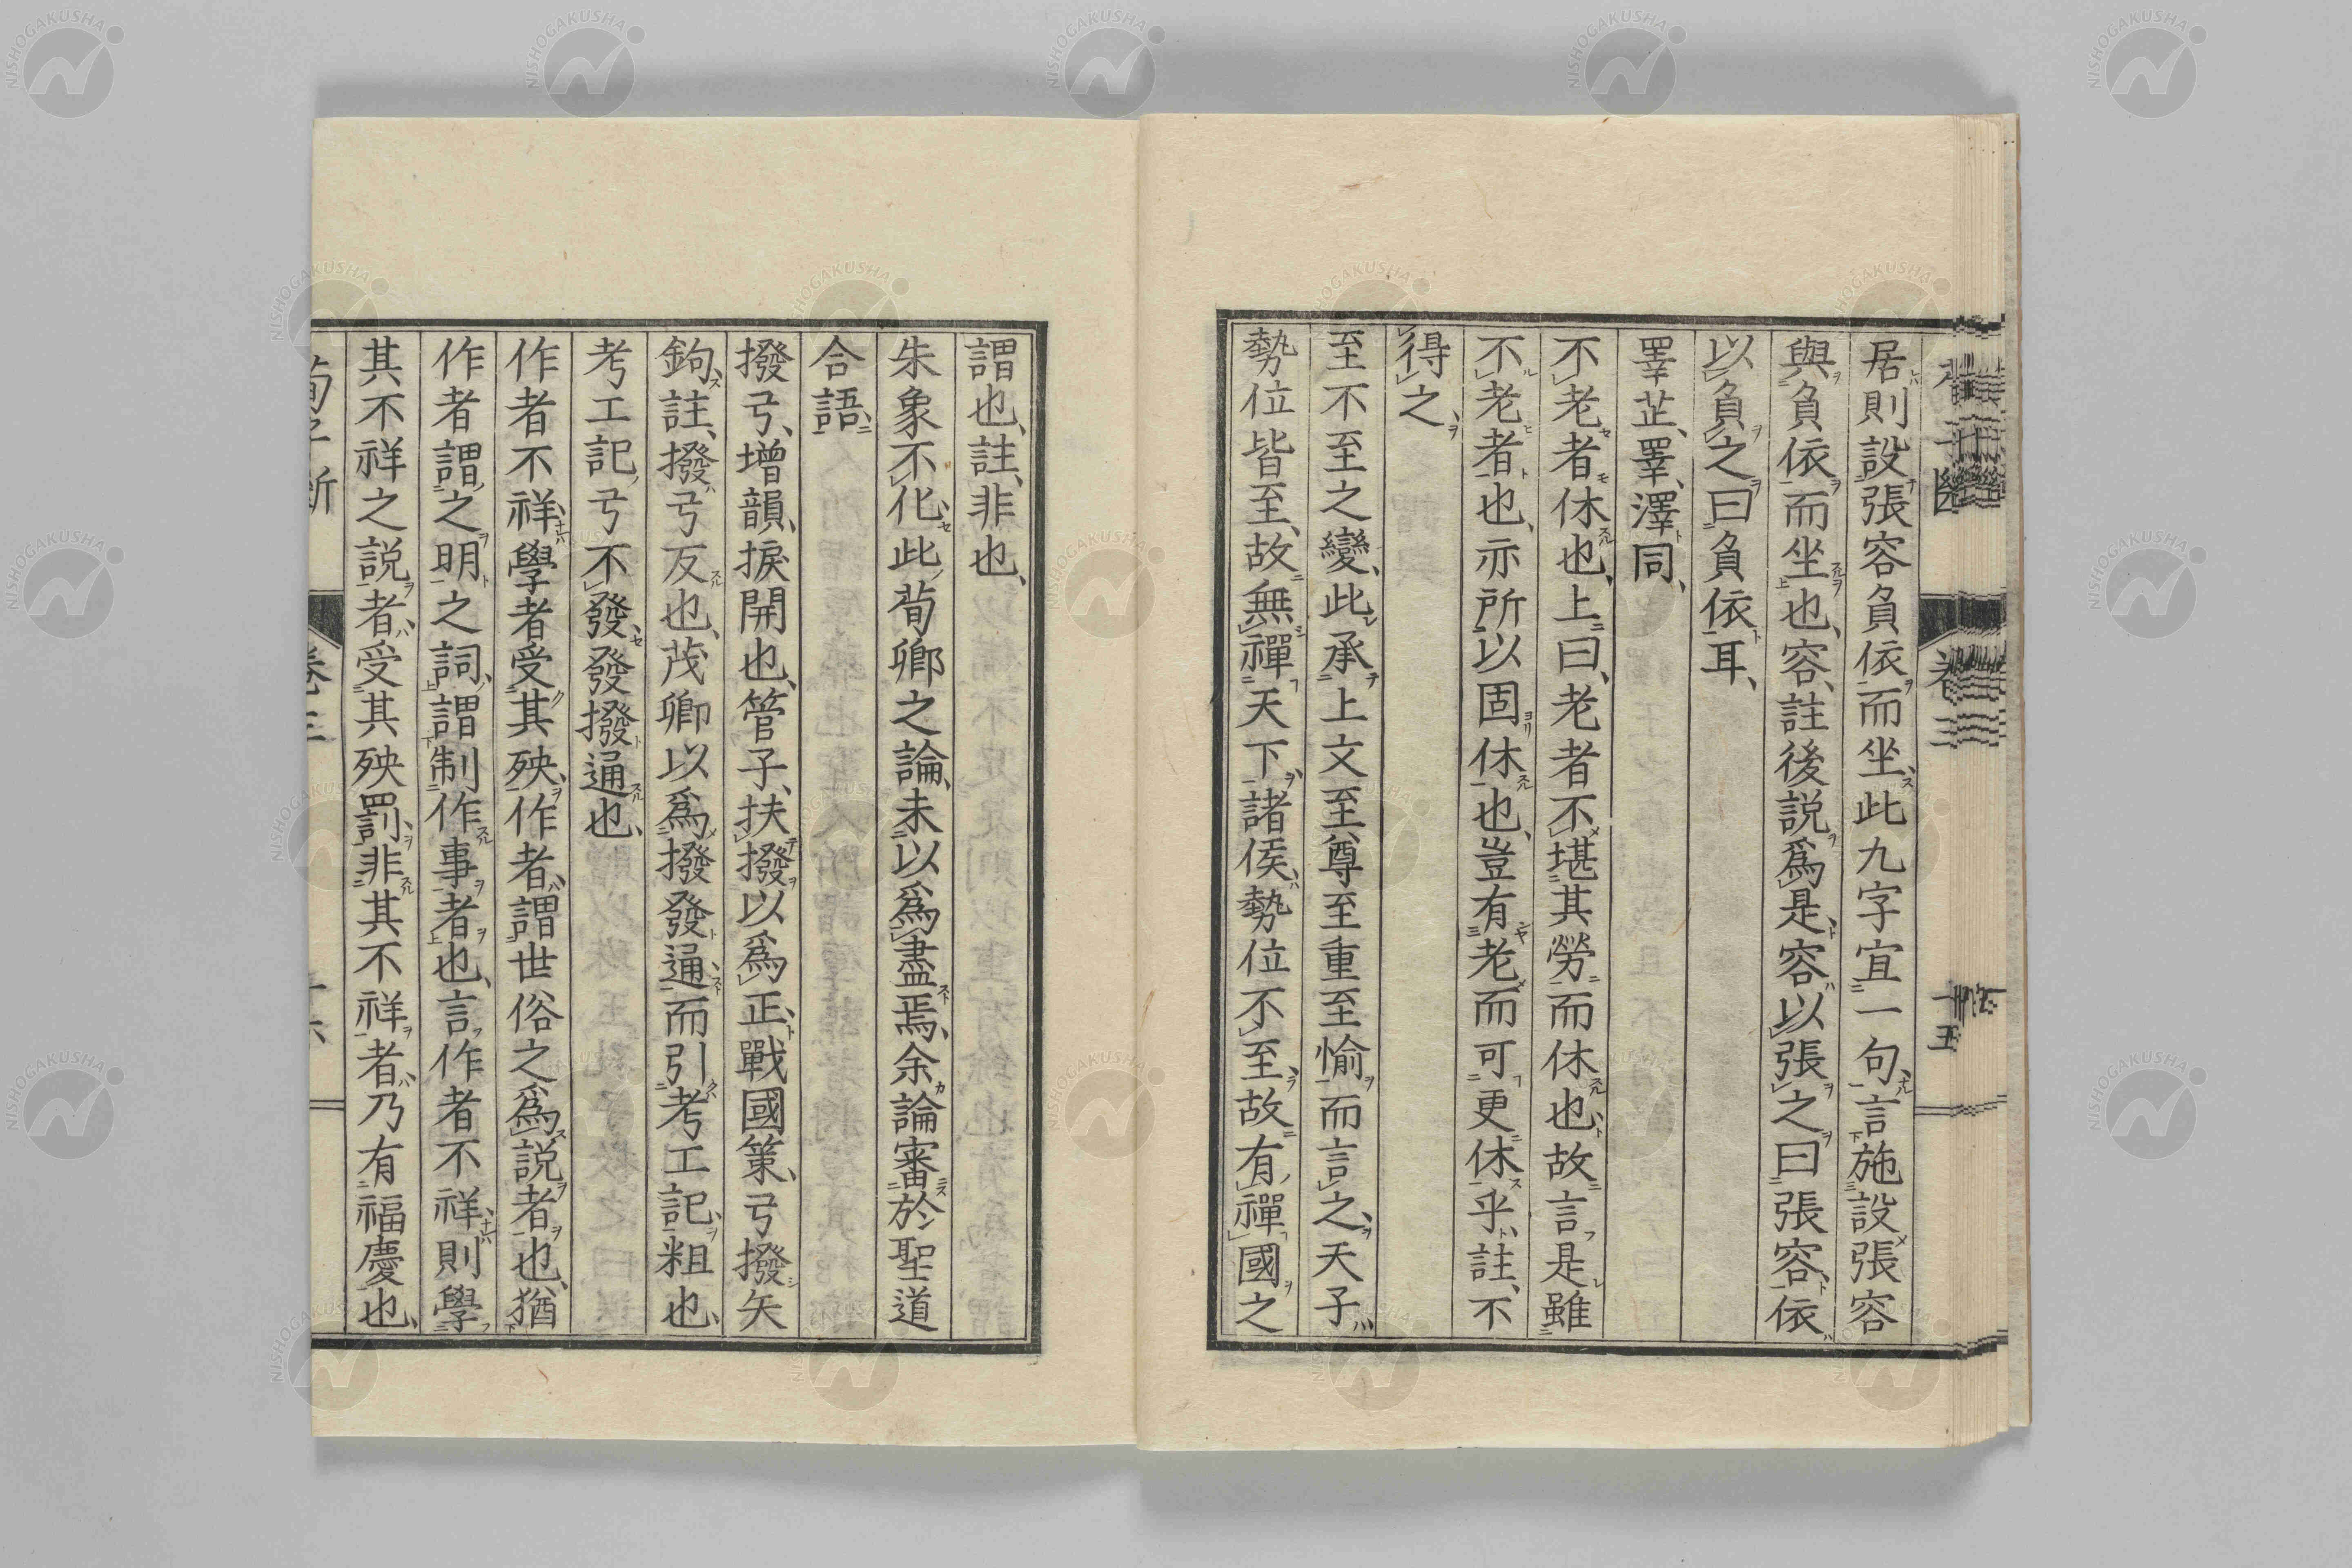 居則設張容負依而坐、此九字宜一句、言施設張容
與負依而坐也、容、註後説爲是、容以張之曰張容、依
以負之曰負依耳、
睪芷、睪、澤同、
不老者休也、上曰、老者不堪其勞而休也、故言是雖
不老者也、亦所以固休也、豈有老而可更休乎、註、不
得之、
至不至之變、此承上文至尊至重至愉而言之、天子
勢位皆至、故無禪天下、諸侯勢位不至、故有禪國之
謂也、註、非也、
朱象不化、此荀卿之論、未以爲盡焉、余論審於聖道
合語、
撥弓、增韻、捩開也、管子、扶撥以爲正、戰國策、弓撥矢
鉤、註、撥弓反也、茂卿以爲撥發通、而引考工記、粗也、
考工記弓不發、發撥通也、
作者不祥、學者受其殃、作者、謂世俗之爲説者也、猶
作者謂之明之詞、謂制作事者也、言作者不祥、則學
其不祥之説者、受其殃罰、非其不祥者、乃有福慶也、
荀子断 卷三